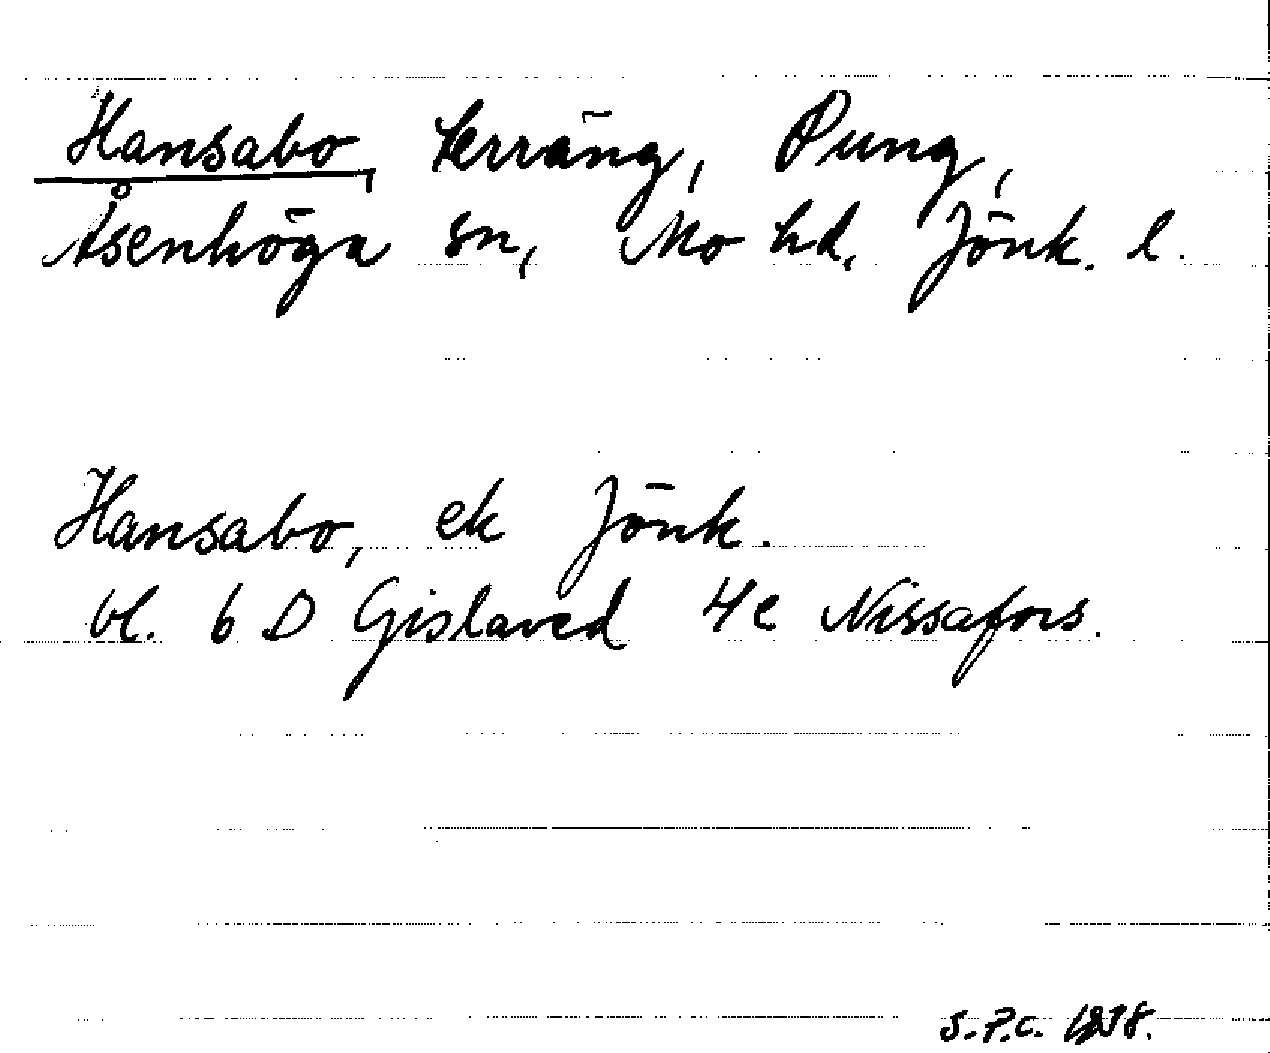 Hansabo, terräng, Pung,
Åsenhöga sn, Mo hd, Jönk. l.
Hansabo, ek Jönk.
bl. 6 D Gislaved 4e Nissafors.
S.P.C.